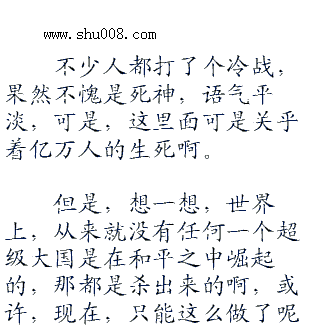 www.shu008.com
不少人都打了个冷战，
果然不愧是死神，语气平
淡，可是，这里面可是关乎
着亿万人的生死啊。
但是，想一想，世界
上，从来就没有任何一个超
级大国是在和平之中崛起
的，那都是杀出来的啊，或
许，现在，只能这么做了呢